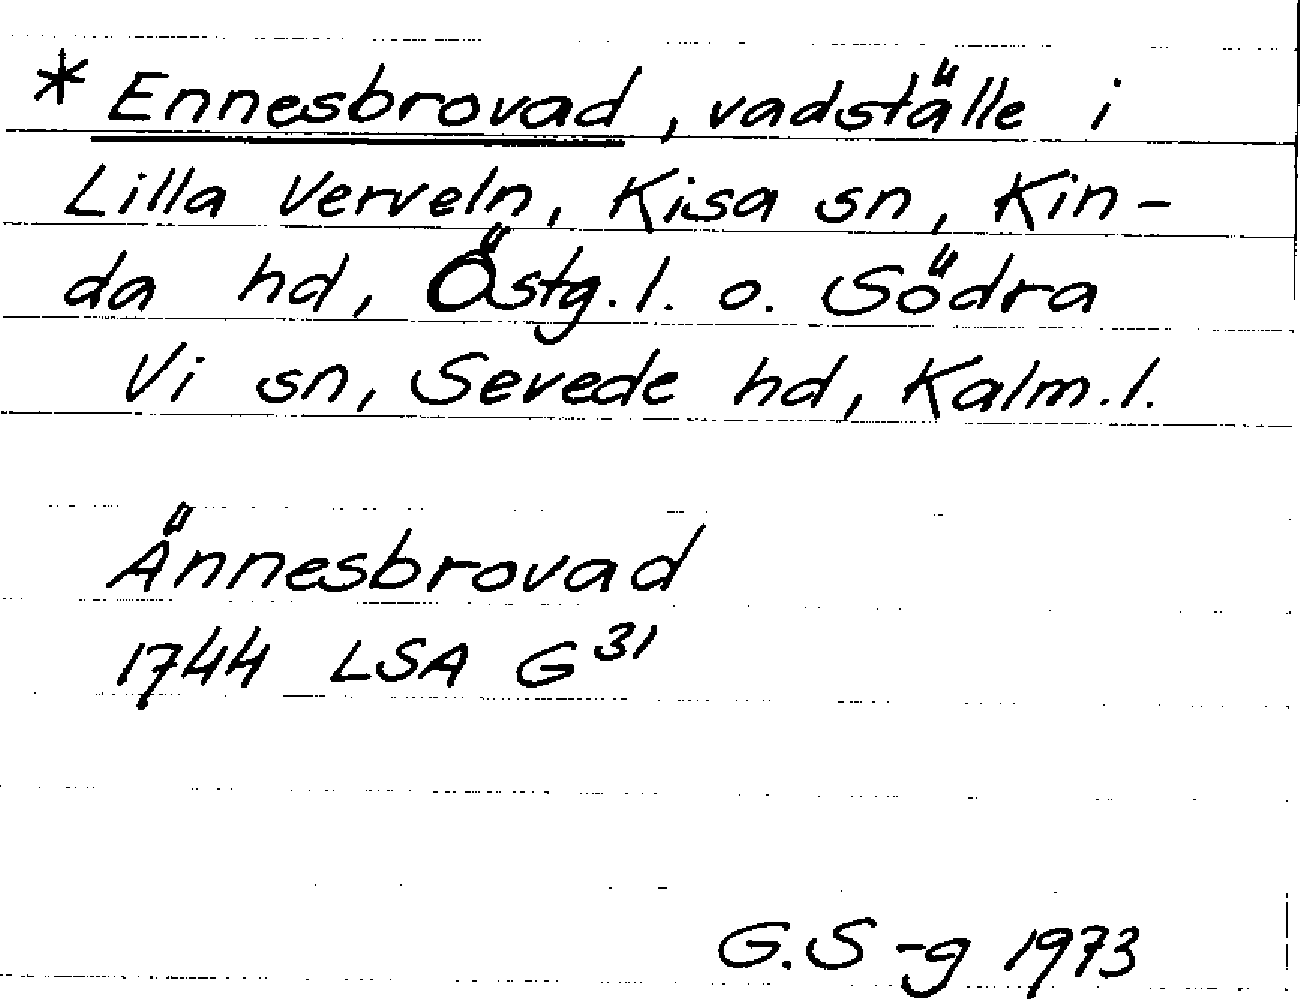 * Ennesbrovad, vadställe i
Lilla Verveln, Kisa sn, Kin-
da hd, Östg. l. o. Södra
Vi sn, Sevede hd, Kalm. l.
Ännesbrovad
1744 LSA G 31
G. S-g 1973